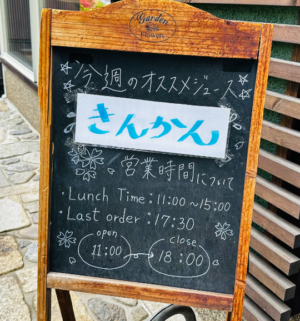 Garden
☆今週のオススメジュース☆
きんかん
営業時間について
・Lunch Time : 11:00~15:00
・Last order : 17:30
open close
11:00 18:00